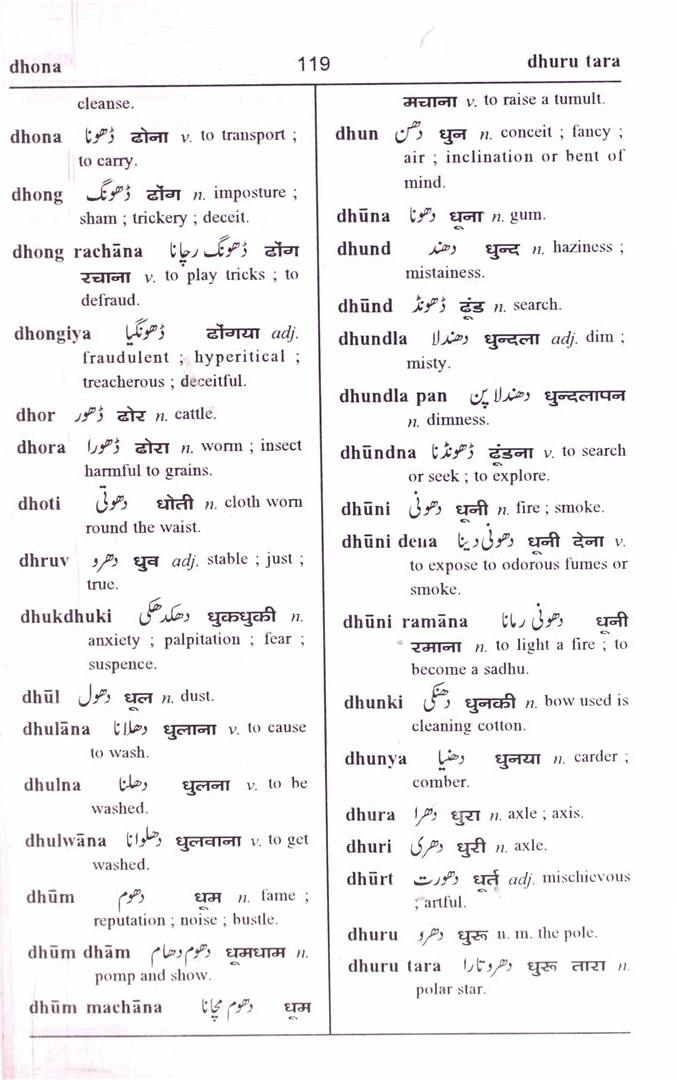 dhona 119 dhuru tara
cleanse.
dhona ڈھونا ढोना v. to transport ;
to carry.
dhong ڈھونگ ढोंग n. imposture ;
sham ; trickery ; deceit.
dhong rachāna ڈھونگ رچانا ढोंग
रचाना v. to play tricks ; to
defraud.
dhongiya ڈھونگیا ढोंगया adj.
fraudulent ; hyperitical ;
treacherous ; deceitful.
dhor ڈھور ढोर n. cattle.
dhora ڈھورا ढोरा n. worm ; insect
harmful to grains.
dhoti دھوتی धोती n. cloth worn
round the waist.
dhruv دھرو धुव adj. stable ; just ;
true.
dhukdhuki دھکدھکی धुकधुकी n.
anxiety ; palpitation ; fear ;
suspence.
dhūl دھول धूल n. dust.
dhulāna دھلانا धुलाना v. to cause
to wash.
dhulna دھلنا धुलना v. to be
washed.
dhulwāna دھلوانا धुलवाना v. to get
washed.
dhūm دھوم धूम n. fame ;
reputation ; noise ; bustle.
dhūm dhām دھوم دھام धूमधाम n.
pomp and show.
dhūm machāna دھوم مچانا धूम
मचाना v. to raise a tumult.
dhun دھن धुन n. conceit ; fancy ;
air ; inclination or bent of
mind.
dhūna دھونا धूना n. gum.
dhund دھند धुन्द n. haziness ;
mistainess.
dhūnd ڈھونڈ ढूंड n. search.
dhundla دھندلا धुन्दला adj. dim ;
misty.
dhundla pan دھندلا پن धुन्दलापन
n. dimness.
dhūndna ڈھونڈنا ढूंडना v. to search
or seek ; to explore.
dhūni دھونی धूनी n. fire ; smoke.
dhūni dena دھونی دینا धूनी देना v.
to expose to odorous fumes or
smoke.
dhūni ramāna دھونی رمانا धूनी
रमाना n. to light a fire ; to
become a sadhu.
dhunki دھنکی धुनकी n. bow used is
cleaning cotton.
dhunya دھنیا धुनया n. carder ;
comber.
dhura دھرا धुरा n. axle ; axis.
dhuri دھری धुरी n. axle.
dhūrt دھورت धूर्त adj. mischievous
; artful.
dhuru دھرو धुरू n. m. the pole.
dhuru tara دھرو تارا धुरू तारा n.
polar star.